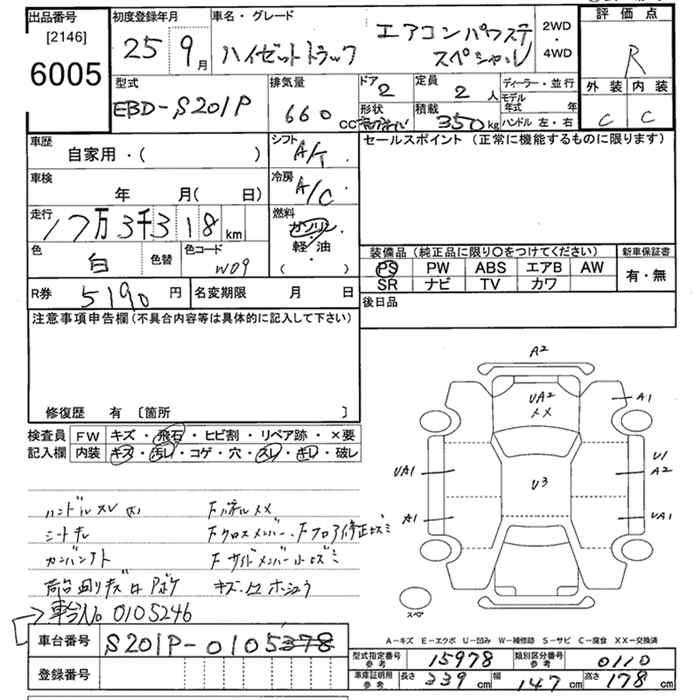 出品番号
[2146]
6005
初度登録年月
25 9月
車名・グレード
ハイゼットトラック
エアコンパワステ
スペシャル
2WD
・
4WD
評価点
R
外装 内装
C C
型式
EBD-S201P
排気量
660 CC
ドア
2
形状
定員
2 人
積載
350 kg
ディーラー・並行
モデル
年式 年
ハンドル 左・右
車歴
自家用・( )
シフト
A/T
セールスポイント (正常に機能するものに限ります)
車検
年 月( 日)
冷房
A/C
走行
17万3千318 km
燃料
ガソリン
軽・油
( )
色
白
色替
色コード
W09
装備品 (純正品に限り〇をつけてください)
新車保証書
PS PW ABS エアB AW
SR ナビ TV カワ
有・無
R券 5190 円
名変期限 月 日
後日品
注意事項申告欄 (不具合内容等は具体的に記入して下さい)
修復歴 有 [箇所 ]
検査員
記入欄
FW キズ・飛石・ヒビ割・リペア跡・×要
内装 キズ・汚レ・コゲ・穴・スレ・キレ・破レ
A2
UA2
××
A1
UA1
U3
U1
A2
A1
UA1
スペア
ハンドルスレ
Fパネル××
シートキレ
Fクロスメンバー、Fフロア修正ヒズミ
Fサイドメンバー小ヒズミ
車台No 0105246
車台番号 S201P-0105378
登録番号
A-キズ E-エクボ U-凹み W-補修跡 S-サビ C-腐食 XX-交換済
型式指定番号
参考
15978
類別区分番号
参考
0110
車庫証明用
参考
長さ 339 cm
幅 147 cm
高さ 178 cm